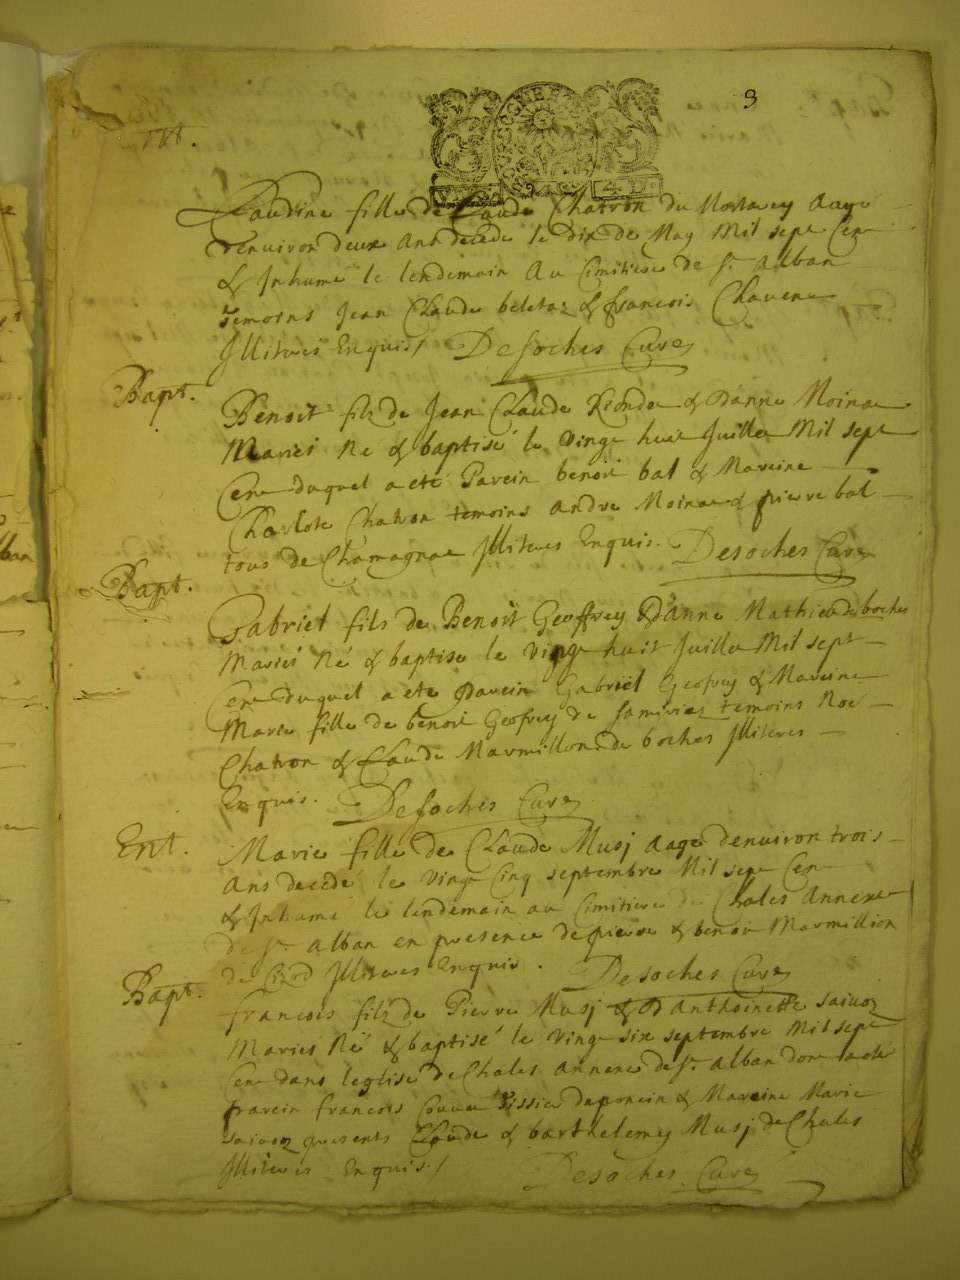 3
Claudine fille de Claude Chatron du Monavey Aage
denuiron deux Ans decede le dix de May Mil sept Cen
& Inhume le lendemain Au Cimitiere de St Alban
temoins Jean Claude beletaz & francois Chavene
Illiteres Enquis / Desoches Cure
Bapt.
Benoit fils de Jean Claude Rionde & d'anne Moinae
Maries Né & baptisé le Vingt huit Juillet Mil sept
Cens duquel a eté Parein benoit bal & Mareine
Charlote Chatron temoins andre Moinae & pierre bal
tous de Chamagnae Illiteres Enquis. Desoches Cure
Bapt.
Gabriel fils de Benoit Geoffrey & d'anne Mathieu de boches
Mariés Né & baptise le Vingt huit Juillet Mil sept
Cens duquel a ete Parein Gabriel Geofrey & Mareine
Marie fille de benoit Geofrey de temoins Noe
Chatron & Claude Marmillon de boches Illiteres
Enquis. Desoches Cure
Ent.
Marie fille de Claude Musj aage denuiron trois
Ans decedé le Vingt Cinq septembre Mil sept Cen
& Inhumé le lendemain au Cimitiere de Chales Annexe
de St Alban en presence de pierre & benoit Marmillion
de Illiteres Enquis. Desoches Cure
Bapt.
francois fils de Pierre Musj & D'anthoinette saivoz
Maries Né & baptisé le Vingt six septembre Mil sept
Cens dans leglise de Chales annexe de St Alban dont a eté
parein francois deponcin & Mareine Marie
saivoz presents Claude & barthelemy Musj de Chales
Illiteres Enquis / Desoches Cure